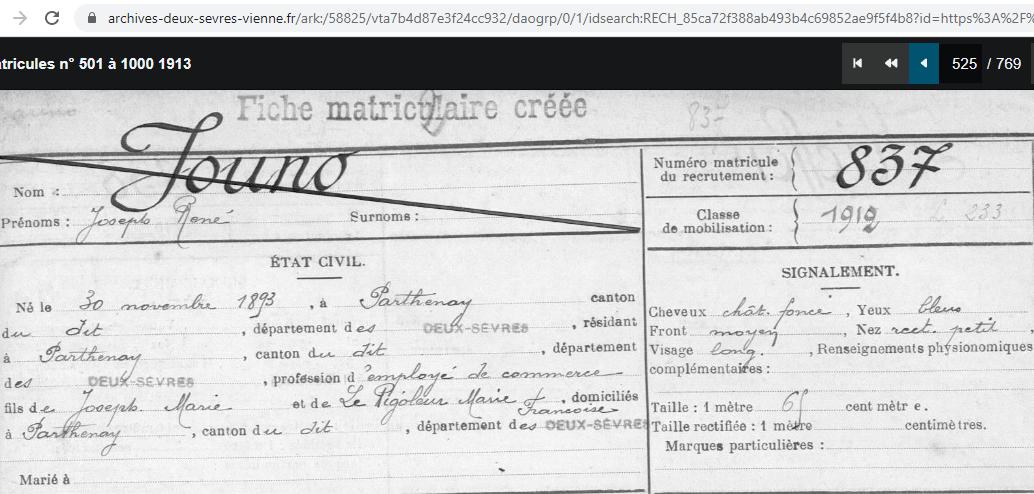 archives-deux-sevres-vienne.fr/ark:/58825/vta7b4d87e3f24cc932/daogrp/0/1/idsearch:RECH_85ca72f388ab493b4c69852ae9f5f4b8?id=https%3A%2F%
tricules n° 501 à 1000 1913
525 / 769
Fiche matriculaire créée
83-
Nom : Jouno
Prénoms : Joseph René Surnoms :
Numéro matricule du recrutement : 837
Classe de mobilisation : 1912 233
ÉTAT CIVIL.
Né le 30 novembre 1893, à Parthenay canton
du dit, département des DEUX-SÈVRES, résidant
à Parthenay, canton du dit, département
des DEUX-SÈVRES, profession d'employé de commerce
fils de Joseph Marie et de Le Pigoleur Marie Françoise, domiciliés
à Parthenay, canton du dit, département des DEUX-SÈVRES
Marié à
SIGNALEMENT.
Cheveux chât. foncé, Yeux bleus
Front moyen, Nez rect. petit
Visage long., Renseignements physionomiques
complémentaires :
Taille : 1 mètre centimètre.
Taille rectifiée : 1 mètre centimètres.
Marques particulières :